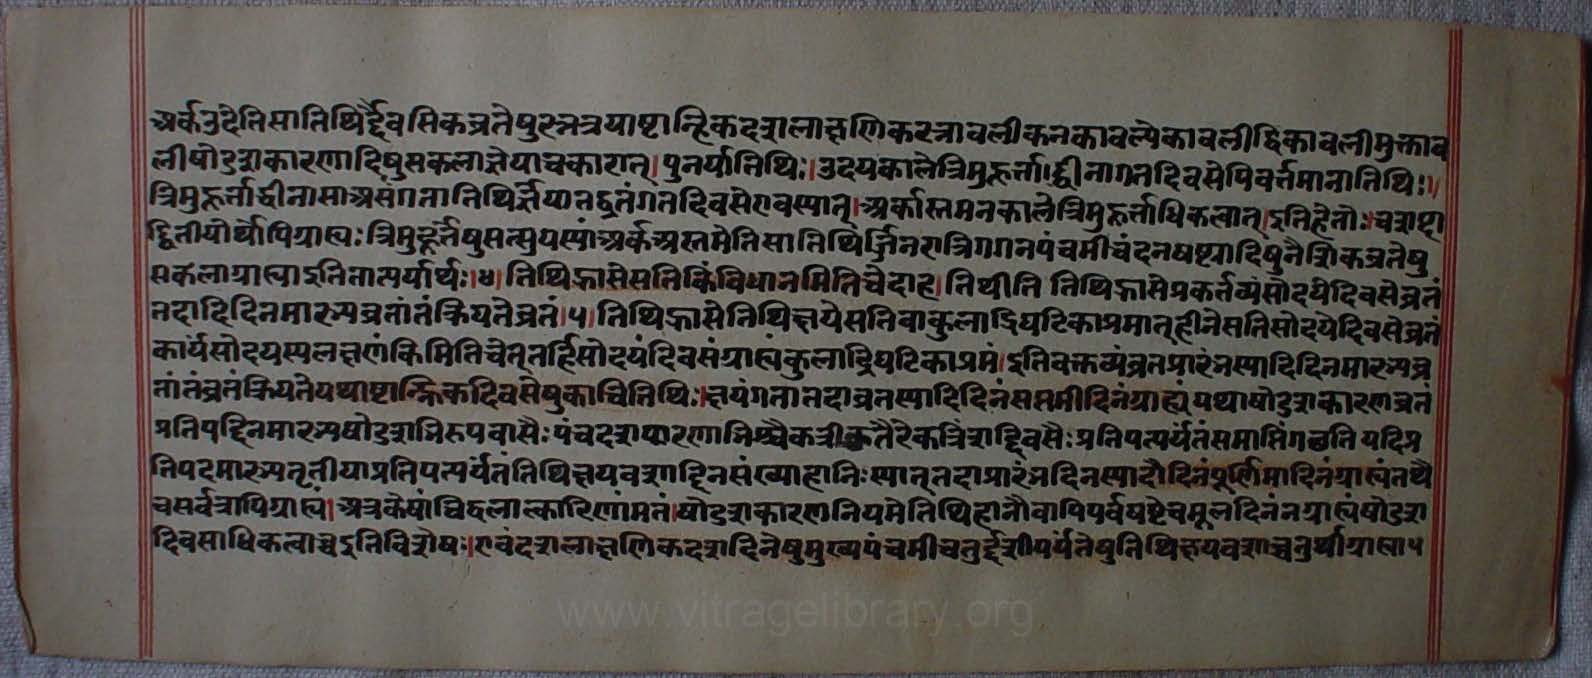 अर्कउदेतिसातिथिर्द्दैवसिकव्रतेषुरत्नत्रयाष्टान्हिकदशलाक्षणिकरत्नावलीकनकावल्येकावलीद्विकावलीमुक्ताव
लीषोडशकारणादिषुसकलाज्ञेयाचकारात्।पुनर्यातिथिः।उदयकालेत्रिमुहूर्त्ताद्धीनागतदिवसेपिवर्त्तमानातिथिः॥
त्रिमुहूर्त्ताद्धीनासाअसंगतातिथिर्ज्ञेयातद्व्रतंगतदिवसेएवस्यात्।अर्कास्तमनकालेत्रिमुहूर्त्ताधिकत्वात्।इतिहेतोः।चशब्दा
द्द्वितीयोर्थोपिग्राह्यः त्रिमुहूर्त्तेषुसत्सुयस्यांअर्कअस्तमेतिसातिथिर्ज्जिनरात्रिगगनपंचमीचंदनषष्ट्यादिषुनैशिकव्रतेषु
सकलाग्राह्याइतितात्पर्यार्थः।४।तिथिह्रासेसतिकिंविधानमितिचेदाह।तिथीति तिथिह्रासेप्रकर्त्तव्यंसोदयेदिवसेव्रतं
तदादिदिनमारभ्यव्रतांतंक्रियतेव्रतं।५।तिथिह्रासेतिथिक्षयेसतिवाकुलाद्रिघटिकाप्रमात्हीनेसतिसोदयेदिवसेव्रतं
कार्यंसोदयस्यलक्षणंकिमितिचेत्तर्हिसोदयंदिवसंग्राह्यंकुलाद्रिघटिकाप्रमं।इतिवक्तव्यंव्रतप्रारंभस्यादिदिनमारभ्यव्र
तांतंव्रतंक्रियतेयथाष्टान्हिकदिवसेषुकाचितिथिः।क्षयंगतातदाव्रतस्यादिदिनंसप्तमीदिनंग्राह्यंयथाषोडशकारणव्रतं
प्रतिपद्दिनमारभ्यषोडशभिरुपवासैःपंचदशपारणाभिश्चैकत्रीकृतैरेकत्रिंशद्दिवसैःप्रतिपत्पर्यंतंसमाप्तिंगछतियदिप्र
तिपदमारभ्यतृतीयाप्रतिपत्पर्यंतंतिथिक्षयवशाद्दिनसंख्याहानिःस्यात्तदाप्रारंभदिनस्यादौदिनंपूर्णिमादिनंग्राह्यंतथै
चसर्वत्रापिग्राह्यं।अत्रकेषांचिद्बलात्कारिणांमतं।षोडशकारणनियमेतिथिहानौवापिपर्वषष्टेचमूलदिनंनग्राह्यंषोडश
दिवसाधिकत्वाच्चइतिविशेषः।एवंदशलाक्षणिकदशदिनेषुमुख्यपंचमीचतुर्द्दशीपर्यंतेषुतिथिक्षयवशाच्चतुर्थीग्राह्या५